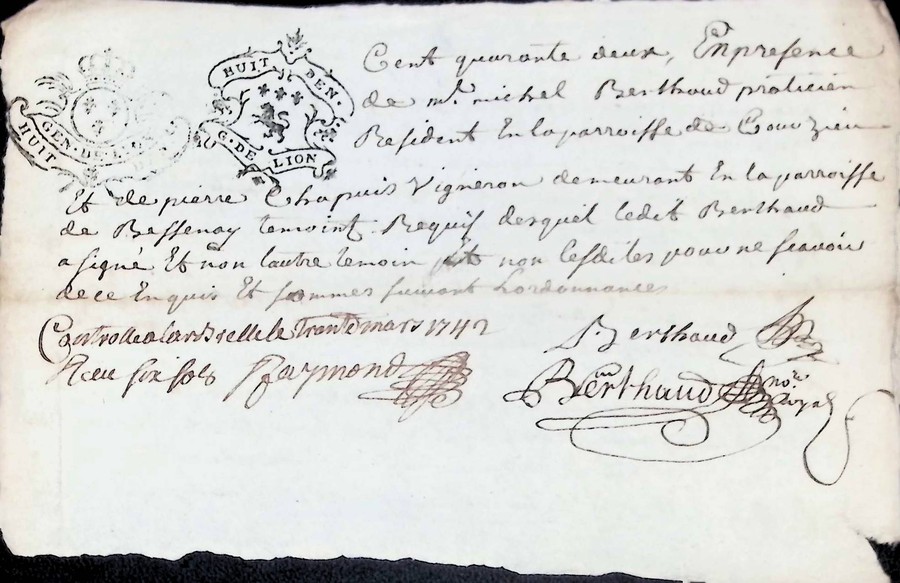 HUIT DEN.
G. DE LION
HUIT
GEN. DE L
Cent quarante deux, En presence
de m.e michel Berthaud praticien
Resident En la parroisse de Couzieu
Et de pierre Chapuis Vigneron demeurant En la parroisse
de Bessenay temoint Requis desquel ledit Berthaud
a signé Et non lautre temoin et non lesdites pour ne scavoir
de ce Enquis Et sommes suivant Lordonnances
Controlle a larbrelle le Trante mars 1742
Receu six sols Raymond
Berthaud
Berthaud no.re Royal